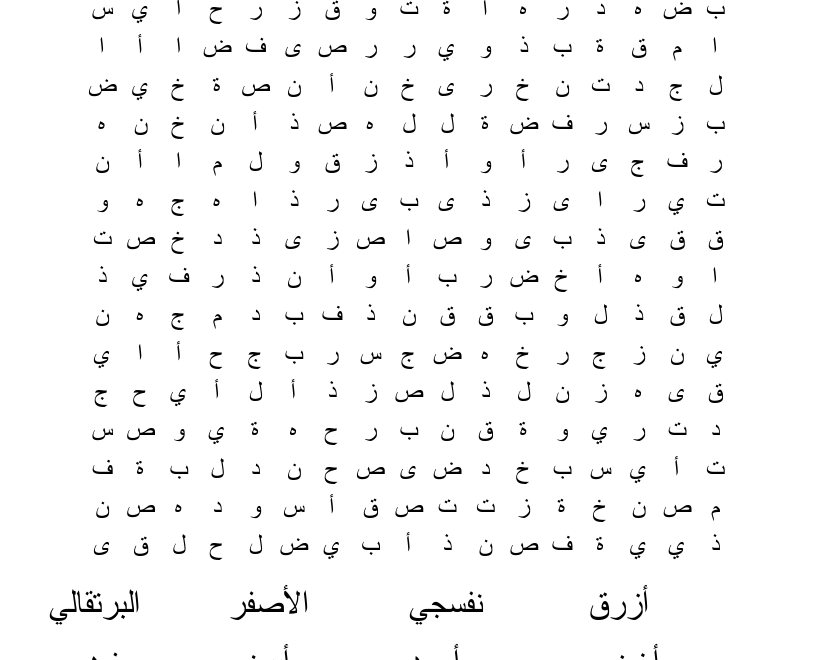 ب ض ه د ر ه ا ة ت و ق ز ر ح ا ي س
ا م ق ة ب ذ و ي ر ر ص ى ف ض ا أ ا
ل ج د ت ن خ ر ى خ ن أ ن ص ة خ ي ض
ب ز س ر ف ض ة ل ل ه ص ذ أ ن خ ن ه
ر ف ج ى ر أ و أ ذ ز ق و ل م ا أ ن
ت ي ر ا ى ز ذ ى ب ى ر ذ ا ه ج ه و
ق ق ى ذ ب ى و ص ا ص ز ى ذ د خ ص ت
ا و ه أ خ ض ر ب أ و أ ن ذ ر ف ي ذ
ل ق ذ ل و ب ق ق ن ذ ف ب د م ج ه ن
ي ن ز ج ر خ ه ض ج س ر ب ج ح أ ا ي
ق ى ه ز ن ل ذ ل ص ز ذ أ ل أ ي ح ج
د ت ر ي و ة ق ن ب ر ح ه ة ي و ص س
ت أ ي س ب خ د ض ى ص ح ن د ل ب ة ف
م ص ن خ ة ز ت ت ص ق أ س و د ه ص ن
ذ ي ي ة ف ص ن ذ أ ب ي ض ل ح ل ق ى
أزرق نفسجي الأصفر البرتقالي